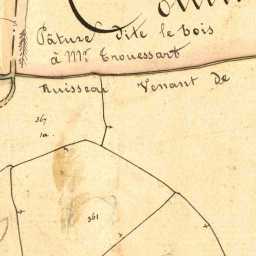 Pâture dite le bois
à Mr. Trouessart
Ruisseau Venant de
367
1a.
361